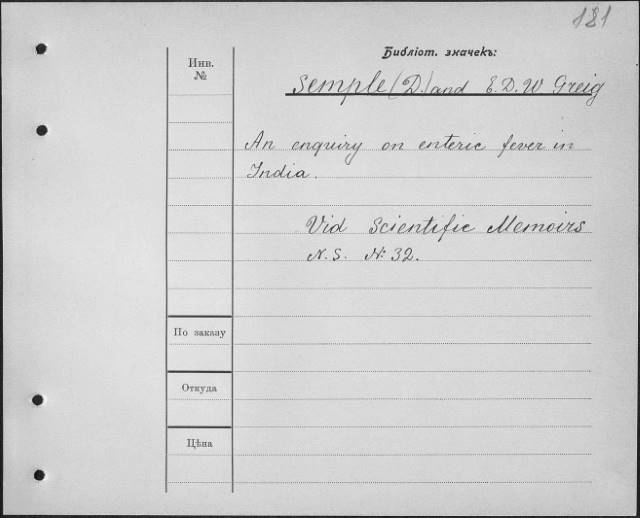 181
Библіот. значекъ:
Инв.
№
Semple (D.) and E. D. W Greig
An enquiry on enteric fever in
India.
Vid Scientific Memoirs
N. S. № 32.
По заказу
Откуда
Цѣна